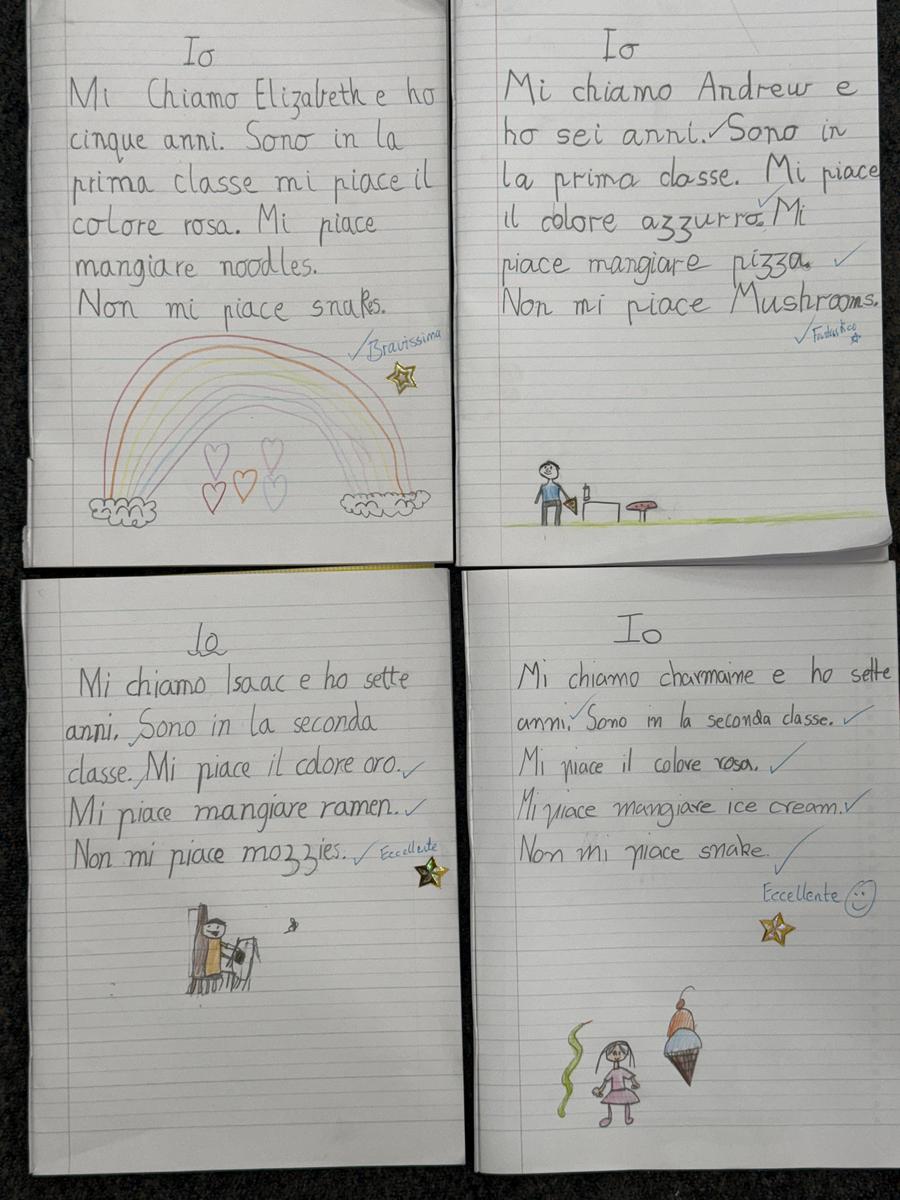 Io
Mi Chiamo Elizabeth e ho
cinque anni. Sono in la
prima classe mi piace il
colore rosa. Mi piace
mangiare noodles.
Non mi piace snakes.
Bravissima
Io
Mi chiamo Andrew e
ho sei anni. Sono in
la prima classe. Mi piace
il colore azzurro. Mi
piace mangiare pizza.
Non mi piace Mushrooms.
Fantastico
Io
Mi chiamo Isaac e ho sette
anni. Sono in la seconda
classe. Mi piace il colore oro.
Mi piace mangiare ramen.
Non mi piace mozzies.
Eccellente
Io
Mi chiamo charmaine e ho sette
anni. Sono in la seconda classe.
Mi piace il colore rosa.
Mi piace mangiare ice cream.
Non mi piace snake.
Eccellente